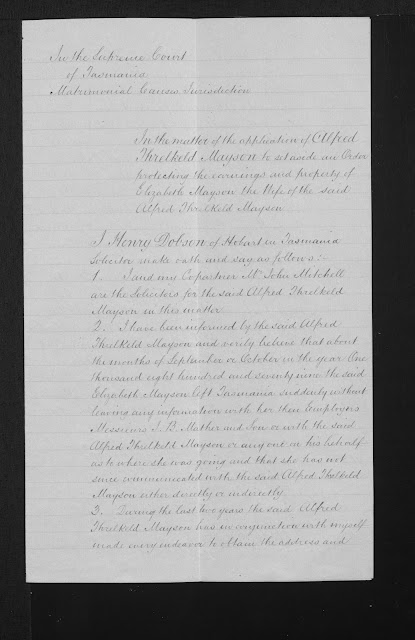 In the Supreme Court
of Tasmania
Matrimonial Causes Jurisdiction
In the matter of the application of Alfred
Threlkeld Mayson to set aside an Order
protecting the earnings and property of
Elizabeth Mayson the Wife of the said
Alfred Threlkeld Mayson
I Henry Dobson of Hobart in Tasmania
Solicitor make oath and say as follows:-
1. I and my Copartner Mr John Mitchell
are the Solicitors for the said Alfred Threlkeld
Mayson in this matter
2. I have been informed by the said Alfred
Threlkeld Mayson and verily believe that about
the months of September or October in the year One
thousand eight hundred and seventy nine the said
Elizabeth Mayson left Tasmania suddenly without
leaving any information with her then employers
Messieurs J. B. Mather and Son or with the said
Alfred Threlkeld Mayson or any one on his behalf
as to where she was going and that she has not
since communicated with the said Alfred Threlkeld
Mayson either directly or indirectly.
3. During the last two years the said Alfred
Threlkeld Mayson has in conjunction with myself
made every endeavor to obtain the address and